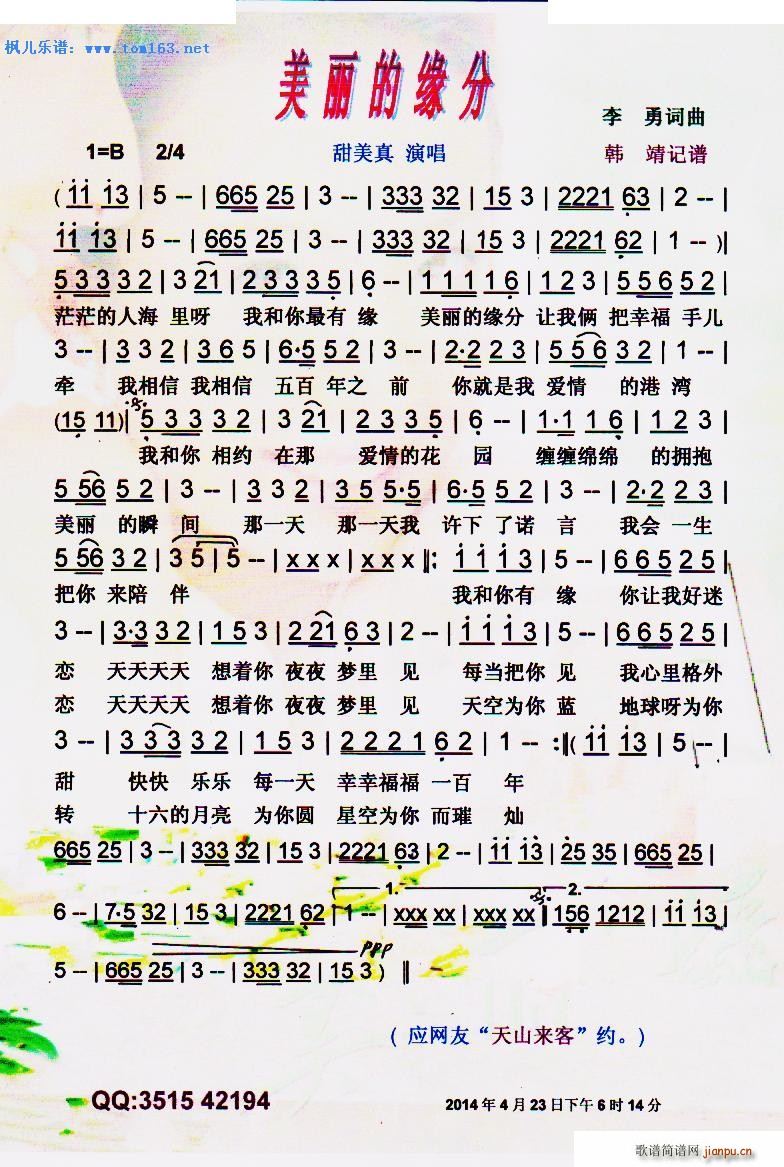 枫儿乐谱：www.tom163.net
美丽的缘分
李 勇词曲
1=B 2/4 甜美真 演唱 韩 靖记谱
( 11 13 | 5 -- | 665 25 | 3 -- | 333 32 | 15 3 | 2221 63 | 2 -- |
11 13 | 5 -- | 665 25 | 3 -- | 333 32 | 15 3 | 2221 62 | 1 -- )|
5 3 3 3 2 | 3 21 | 2 3 3 3 5 | 6 -- | 1 1 1 1 6 | 1 2 3 | 5 5 5 6 5 2 |
茫茫的人海 里呀 我和你最有 缘 美丽的缘分 让我俩 把幸福 手儿
3 -- | 3 3 2 | 3 6 5 | 6·5 5 2 | 3 -- | 2·2 2 3 | 5 5 6 3 2 | 1 -- |
牵 我相信 我相信 五百 年之 前 你就是我 爱情 的港 湾
(15 11)| 5 3 3 3 2 | 3 21 | 2 3 3 3 5 | 6 -- | 1·1 1 6 | 1 2 3 |
我和你 相约 在那 爱情的花 园 缠缠绵绵 的拥抱
5 56 5 2 | 3 -- | 3 3 2 | 3 5 5·5 | 6·5 5 2 | 3 -- | 2·2 2 3 |
美丽 的瞬 间 那一天 那一天我 许下 了诺 言 我会 一生
5 56 3 2 | 3 5 | 5 -- | x x x | x x x ‖: 1 1 1 3 | 5 -- | 6 6 5 2 5 |
把你 来陪 伴 我和你有 缘 你让我好迷
3 -- | 3·3 3 2 | 1 5 3 | 2 21 6 3 | 2 -- | 1 1 1 3 | 5 -- | 6 6 5 2 5 |
恋 天天天天 想着你 夜夜 梦里 见 每当把你 见 我心里格外
恋 天天天天 想着你 夜夜 梦里 见 天空为你 蓝 地球呀为你
3 -- | 3 3 3 3 2 | 1 5 3 | 2 2 2 1 | 6 2 | 1 -- :‖( 11 13 | 5 -- |
甜 快快 乐乐 每一天 幸幸福福 一百 年
转 十六的月亮 为你圆 星空为你 而璀 灿
665 25 | 3 -- | 333 32 | 15 3 | 2221 63 | 2 -- | 11 13 | 25 35 | 665 25 |
1. 2.
6 -- | 7·5 32 | 15 3 | 2221 62 | 1 -- | xxx xx | xxx xx :‖ 156 1212 | 11 13 |
ppp
5 -- | 665 25 | 3 -- | 333 32 | 15 3 ) ‖
( 应网友“天山来客”约。)
QQ:3515 42194
2014 年 4 月 23 日下午 6 时 14 分
歌谱简谱网
jianpu.cn